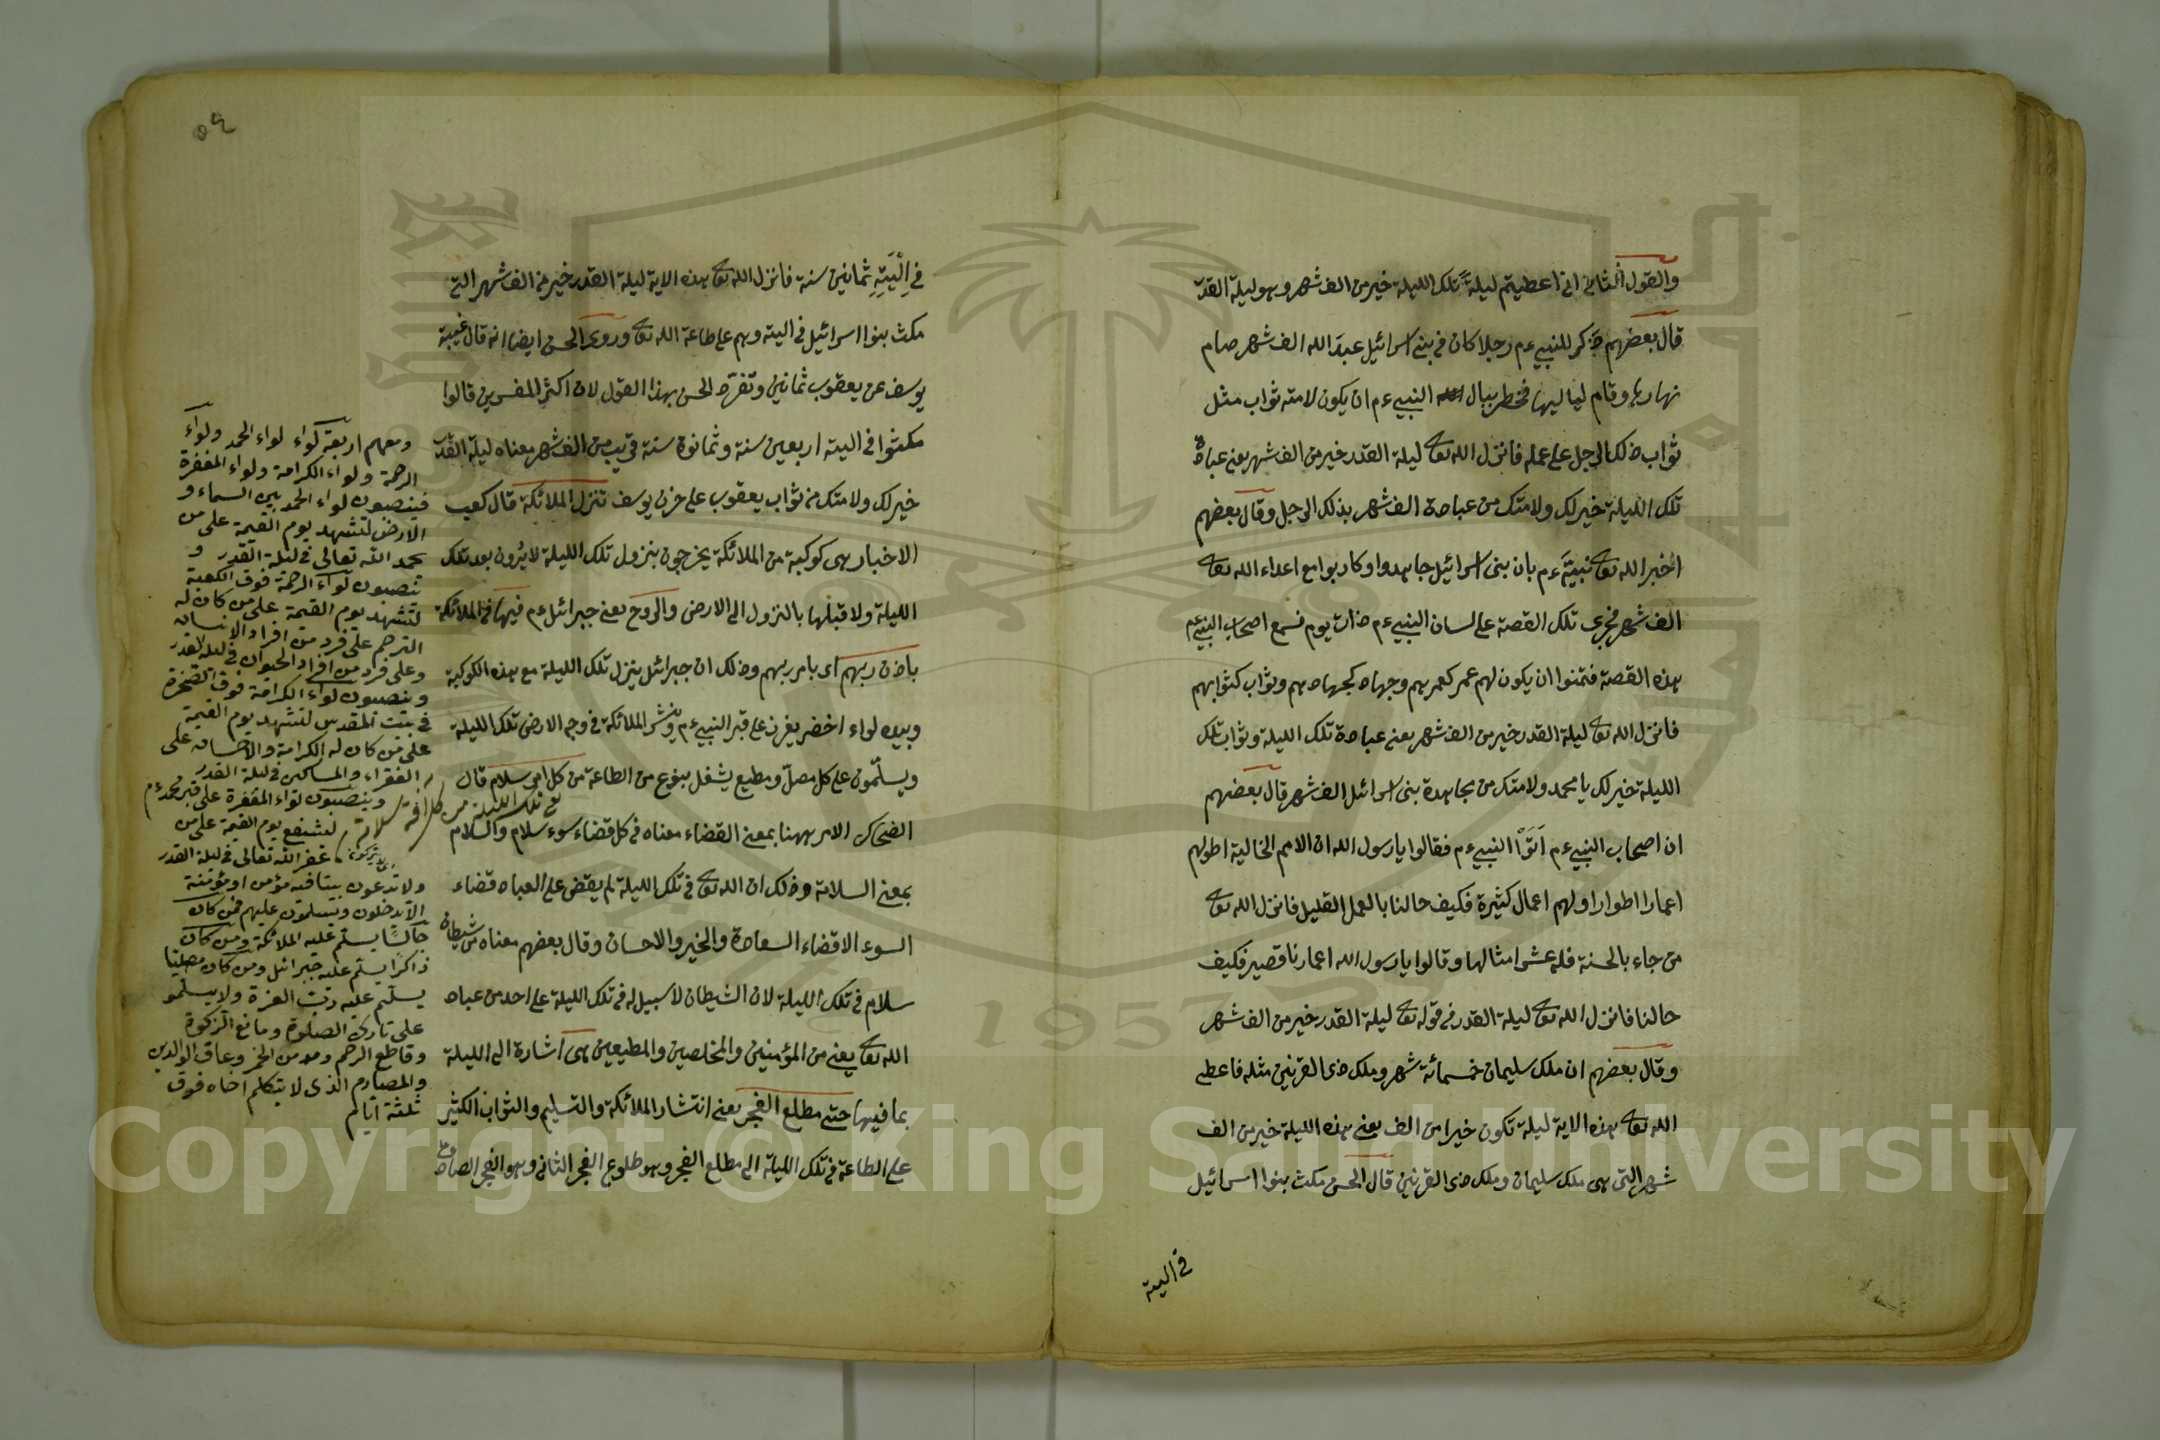 والقول الثاني اني اعطيتم ليلة تلك الليلة خير من الف شهر وهو ليلة القدر
قال بعضهم ذكر للنبي ءم رجلا كان في بني اسرائيل عبد الله الف شهر صام
نهارها وقام لياليها فخطر ببال النبي ءم ان يكون لامته ثواب مثل
ثواب ذلك الرجل على عمله فانزل الله تعا ليلة القدر خير من الف شهر يعني عبادة
تلك الليلة خير لك ولامتك من عبادة الف شهر بذلك الرجل وقال بعضهم
اخبر الله تعا نبيه ءم بان بني اسرائيل جاهدوا وكاربوا مع اعداء الله تعا
الف شهر فجرى تلك القصة على لسان النبي ءم ذات يوم فسمع اصحاب النبي ءم
هذه القصة فتمنوا ان يكون لهم عمر كعمرهم وجهاد كجهادهم وثواب كثوابهم
فانزل الله تعا ليلة القدر خير من الف شهر يعني عبادة تلك الليلة وثواب تلك
الليلة خير لك يا محمد ولامتك من مجاهدة بني اسرائل الف شهر قال بعضهم
ان اصحاب النبي ءم اتوا النبي ءم فقالوا يا رسول الله ان الامم الخالية اطولهم
اعمارا اطوارا ولهم اعمال كثيرة فكيف حالنا بالعمل القليل فانزل الله تعا
من جاء بالحسنة فله عشر امثالها وقالوا يا رسول الله اعمارنا قصير فكيف
حالنا فانزل الله تعا ليلة القدر في قوله تعا ليلة القدر خير من الف شهر
وقال بعضهم ان ملك سليمان خمسمائة شهر وملك ذي القرنين مثله فاعطى
الله تعا هذه الاية ليلة تكون خيرا من الف يعني هذه الليلة خير من الف
شهر التي هي ملك سليمان وملك ذي القرنين قال الحسن مكث بنوا اسرائيل
في اليته
٥٤
في اليتة ثمانين سنة فانزل الله تعا هذه الاية ليلة القدر خير من الف شهر التي
مكث بنوا اسرائيل في اليته وهم على طاعة الله تعا وروى الحسن ايضا انه قال غيبة
يوسف عن يعقوب ثمانين وتفرد الحسن بهذا القول لان اكثر المفسرين قالوا
مكثوا في اليته اربعين سنة وثمانون سنة قريب من الف شهر معناه ليلة القدر
خير لك ولامتك من ثواب يعقوب على حزن يوسف تنزل الملائكة قال كعب
الاخبار هي كوكبة من الملائكة يخرجون بنزول تلك الليلة لا يرون بعد تلك
الليلة ولا قبلها بالنزول الى الارض والروح يعني جبرائل ءم فيها في الملائكة
باذن ربهم اى بامر ربهم وذلك ان جبرائل ينزل تلك الليلة مع هذه الكوكبة
وبيده لواء اخضر يغرز على قبر النبي ءم وينشر الملائكة في وجه الارض تلك الليلة
ويسلمون على كل مصل ومطيع يشغل بنوع من الطاعة من كل امر سلام قال
الضحاك الامر ههنا بمعنى القضاء معناه في كل قضاء سوء سلام والسلام
بمعنى السلامة وذلك ان الله تعا في تلك الليلة لم يقض على العباد قضاء
السوء الا قضاء السعادة والخير والاحسان وقال بعضهم معناه من شيطان
سلام في تلك الليلة لان الشيطان لا سبيل له في تلك الليلة على احد من عباد
الله تعا يعني من المؤمنين والمخلصين والمطيعين هي اشارة الى الليلة
بما فيها حتى مطلع الفجر يعني انتشار الملائكة والتسليم والثواب الكثير
على الطاعة في تلك الليلة الى مطلع الفجر وهو طلوع الفجر الثاني وهو الفجر الصادق
ومعهم اربعة لواء لواء الحمد ولواء
الرحمة ولواء الكرامة ولواء المغفرة
فينصبون لواء الحمد بين السماء و
الارض لتشهد يوم القيمة على من
حمد الله تعالى في ليلة القدر و
تنصبون لواء الرحمة فوق الكعبة
لتشهد يوم القيمة على من كان له
الترحم على فرد من افراد الانسان
وعلى فرد من افراد الحيوان في ليلة القدر
وينصبون لواء الكرامة فوق الصخرة
في بيت المقدس لتشهد يوم القيمة
على من كان له الكرامة والاحسان على
الفقراء والمساكين في ليلة القدر
وينصبون لواء المغفرة على قبر محمد ءم
لتشفع يوم القيمة على من
غفر الله تعالى في ليلة القدر
ولا تدعون بيتا فيه مؤمن او مؤمنة
الا يدخلون ويسلمون عليهم فمن كان
جالسا يسلم عليه الملائكة ومن كان
ذاكرا يسلم عليه جبرائل ومن كان مصليا
يسلم عليه رب العزة ولا يسلمو
على تارك الصلوة ومانع الزكوة
وقاطع الرحم ومدمن الخمر وعاق الوالدين
والمصارم الذى لا يتكلم اخاه فوق
ثلثة ايام
في تلك الليلة من كل افة سلامة